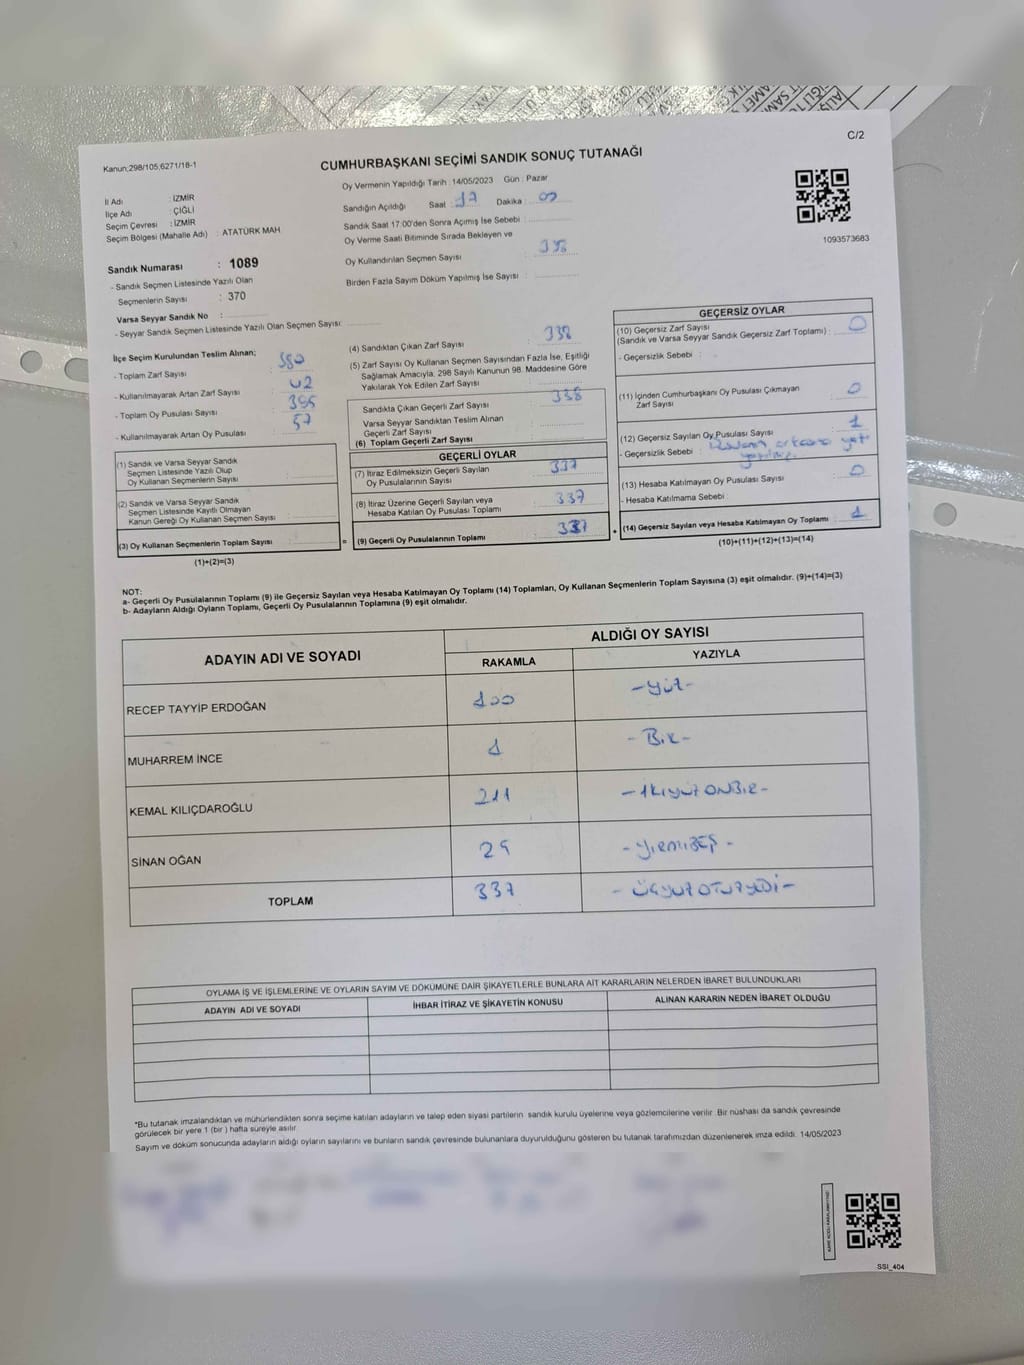 C/2
Kanun;298/105;6271/18-1
CUMHURBAŞKANI SEÇİMİ SANDIK SONUÇ TUTANAĞI
İl Adı : İZMİR
İlçe Adı : ÇİĞLİ
Seçim Çevresi : İZMİR
Seçim Bölgesi (Mahalle Adı) : ATATÜRK MAH
Sandık Numarası : 1089
- Sandık Seçmen Listesinde Yazılı Olan
Seçmenlerin Sayısı : 370
Varsa Seyyar Sandık No :
- Seyyar Sandık Seçmen Listesinde Yazılı Olan Seçmen Sayısı:
Oy Vermenin Yapıldığı Tarih : 14/05/2023 Gün : Pazar
Sandığın Açıldığı Saat : 17 Dakika : 00
Sandık Saat 17:00'den Sonra Açılmış İse Sebebi :
Oy Verme Saati Bitiminde Sırada Bekleyen ve
Oy Kullandırılan Seçmen Sayısı :
Birden Fazla Sayım Döküm Yapılmış İse Sayısı :
1093573683
İlçe Seçim Kurulundan Teslim Alınan;
- Toplam Zarf Sayısı : 380
- Kullanılmayarak Artan Zarf Sayısı : 42
- Toplam Oy Pusulası Sayısı : 395
- Kullanılmayarak Artan Oy Pusulası : 57
(1) Sandık ve Varsa Seyyar Sandık
Seçmen Listesinde Yazılı Olup
Oy Kullanan Seçmenlerin Sayısı :
(2) Sandık ve Varsa Seyyar Sandık
Seçmen Listesinde Kayıtlı Olmayan
Kanun Gereği Oy Kullanan Seçmen Sayısı :
(3) Oy Kullanan Seçmenlerin Toplam Sayısı :
(1)+(2)=(3)
(4) Sandıktan Çıkan Zarf Sayısı : 338
(5) Zarf Sayısı Oy Kullanan Seçmen Sayısından Fazla İse, Eşitliği
Sağlamak Amacıyla, 298 Sayılı Kanunun 98. Maddesine Göre
Yakılarak Yok Edilen Zarf Sayısı :
Sandıkta Çıkan Geçerli Zarf Sayısı : 338
Varsa Seyyar Sandıktan Teslim Alınan
Geçerli Zarf Sayısı :
(6) Toplam Geçerli Zarf Sayısı :
GEÇERLİ OYLAR
(7) İtiraz Edilmeksizin Geçerli Sayılan
Oy Pusulalarının Sayısı : 337
(8) İtiraz Üzerine Geçerli Sayılan veya
Hesaba Katılan Oy Pusulası Toplamı : 337
= (9) Geçerli Oy Pusulalarının Toplamı : 337
GEÇERSİZ OYLAR
(10) Geçersiz Zarf Sayısı
(Sandık ve Varsa Seyyar Sandık Geçersiz Zarf Toplamı) : 0
- Geçersizlik Sebebi :
(11) İçinden Cumhurbaşkanı Oy Pusulası Çıkmayan
Zarf Sayısı : 0
(12) Geçersiz Sayılan Oy Pusulası Sayısı : 1
- Geçersizlik Sebebi :
(13) Hesaba Katılmayan Oy Pusulası Sayısı : 0
- Hesaba Katılmama Sebebi :
+ (14) Geçersiz Sayılan veya Hesaba Katılmayan Oy Toplamı : 1
(10)+(11)+(12)+(13)=(14)
NOT:
a- Geçerli Oy Pusulalarının Toplamı (9) ile Geçersiz Sayılan veya Hesaba Katılmayan Oy Toplamı (14) Toplamları, Oy Kullanan Seçmenlerin Toplam Sayısına (3) eşit olmalıdır. (9)+(14)=(3)
b- Adayların Aldığı Oyların Toplamı, Geçerli Oy Pusulalarının Toplamına (9) eşit olmalıdır.
ADAYIN ADI VE SOYADI ALDIĞI OY SAYISI
RAKAMLA YAZIYLA
RECEP TAYYİP ERDOĞAN 100 -YÜZ-
MUHARREM İNCE 1 -BİR-
KEMAL KILIÇDAROĞLU 211 -İKİYÜZONBİR-
SİNAN OĞAN 25 -YİRMİBEŞ-
TOPLAM 337 -ÜÇYÜZOTUZYEDİ-
OYLAMA İŞ VE İŞLEMLERİNE VE OYLARIN SAYIM VE DÖKÜMÜNE DAİR ŞİKAYETLERLE BUNLARA AİT KARARLARIN NELERDEN İBARET BULUNDUKLARI
ADAYIN ADI VE SOYADI İHBAR İTİRAZ VE ŞİKAYETİN KONUSU ALINAN KARARIN NEDEN İBARET OLDUĞU
*Bu tutanak imzalandıktan ve mühürlendikten sonra seçime katılan adayların ve talep eden siyasi partilerin sandık kurulu üyelerine veya gözlemcilerine verilir. Bir nüshası da sandık çevresinde
görülecek bir yere 1 (bir) hafta süreyle asılır.
Sayım ve döküm sonucunda adayların aldığı oyların sayılarını ve bunların sandık çevresinde bulunanlara duyurulduğunu gösteren bu tutanak tarafımızdan düzenlenerek imza edildi. 14/05/2023
SSI_404